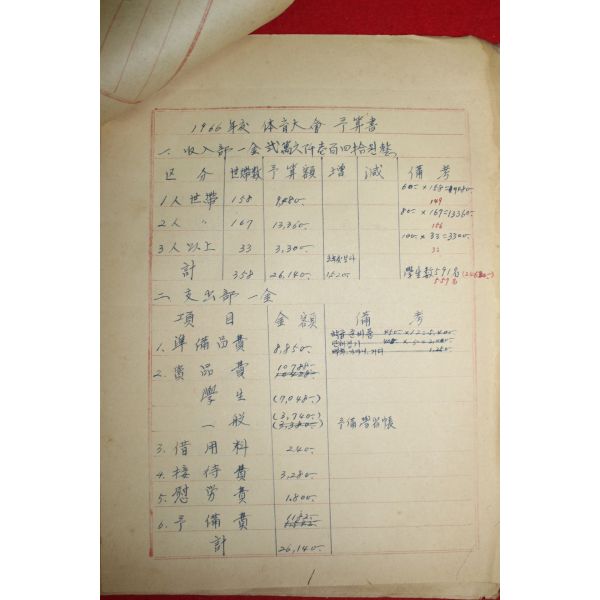 1966年度 体育大會 予算書
一. 收入部 一金 弐萬六阡壱百四拾원整
区 分 世帶数 予算額 增 減 備 考
1人 世帶 158 9,480.- 60.- × 158 = 9480.-
149
2人 〃 167 13,360.- 80.- × 167 = 13360.-
156
3人 以上 33 3,300.- 100.- × 33 = 3300.-
32
計 358 26,140.- 1520.- 學生数 591名
559名
二. 支出部 一金
項 目 金 額 備 考
1. 準備品費 8,850.-
2. 賞品費 10,788.-
學生 (7,048.-)
一般 (3,740.-)
(3,380.-) 予備學習帳
3. 借用料 240.-
4. 接待費 3,280.-
5. 慰労費 1,800.-
6. 予備費 1182.-
計 26,140.-
1